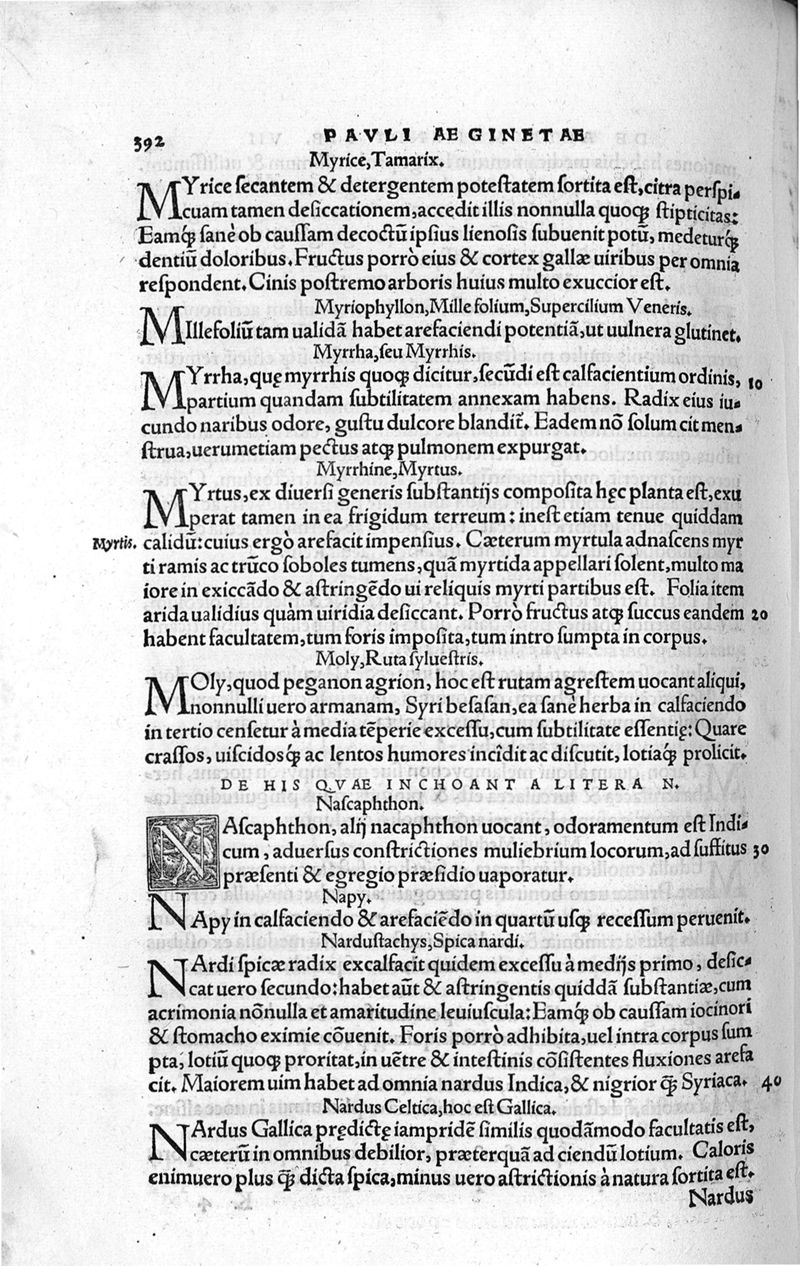 392 PAVLI AEGINETAE
Myrice, Tamarix.
MYrice ſecantem & detergentem poteſtatem ſortita eſt, citra perſpi-
cuam tamen deſiccationem, accedit illis nonnulla quoqꝫ ſtipticitas:
Eamqꝫ ſanè ob cauſſam decoctũ ipſius lienoſis ſubuenit potũ, medeturqꝫ
dentiũ doloribus. Fructus porrò eius & cortex gallæ uiribus per omnia
reſpondent. Cinis poſtremo arboris huius multo exuccior eſt.
Myriophyllon, Mille folium, Supercilium Veneris.
MIllefoliũ tam ualidã habet arefaciendi potentiã, ut uulnera glutinet.
Myrrha, ſeu Myrrhis.
MYrrha, quę myrrhis quoqꝫ dicitur, ſecũdi eſt calfacientium ordinis, 10
partium quandam ſubtilitatem annexam habens. Radix eius iu-
cundo naribus odore, guſtu dulcore blandit̃. Eadem nõ ſolum cit men-
ſtrua, uerumetiam pectus atqꝫ pulmonem expurgat.
Myrrhine, Myrtus.
MYrtus, ex diuerſi generis ſubſtantijs compoſita hęc planta eſt, exu
perat tamen in ea frigidum terreum: ineſt etiam tenue quiddam
Myrtis. calidũ: cuius ergò arefacit impenſius. Cæterum myrtula adnaſcens myr
ti ramis ac trũco ſoboles tumens, quã myrtida appellari ſolent, multo ma
iore in exiccãdo & aſtringẽdo ui reliquis myrti partibus eſt. Folia item
arida ualidius quàm uiridia deſiccant. Porrò fructus atqꝫ ſuccus eandem 20
habent facultatem, tum foris impoſita, tum intro ſumpta in corpus.
Moly, Ruta ſylueſtris.
MOly, quod peganon agrion, hoc eſt rutam agreſtem uocant aliqui,
nonnulli uero armanam, Syri beſaſan, ea ſanè herba in calfaciendo
in tertio cenſetur à media tẽperie exceſſu, cum ſubtilitate eſſentię: Quare
craſſos, uiſcidosqꝫ ac lentos humores incîdit ac diſcutit, lotiaqꝫ prolicit.
DE HIS QVAE INCHOANT A LITERA N.
Naſcaphthon.
NAſcaphthon, alij nacaphthon uocant, odoramentum eſt Indi-
cum, aduerſus conſtrictiones muliebrium locorum, ad ſuffitus 30
præſenti & egregio præſidio uaporatur.
Napy.
NApy in calfaciendo & arefaciẽdo in quartũ uſqꝫ receſſum peruenit.
Narduſtachys, Spica nardi.
NArdi ſpicæ radix excalfacit quidem exceſſu à medijs primo, deſic-
cat uero ſecundo: habet aũt & aſtringentis quiddã ſubſtantiæ, cum
acrimonia nõnulla et amaritudine leuiuſcula: Eamqꝫ ob cauſſam iocinori
& ſtomacho eximie cõuenit. Foris porrò adhibita, uel intra corpus ſum
pta, lotiũ quoqꝫ proritat, in uẽtre & inteſtinis cõſiſtentes fluxiones arefa
cit. Maiorem uim habet ad omnia nardus Indica, & nigrior qꝫ̃ Syriaca. 40
Nardus Celtica, hoc eſt Gallica.
NArdus Gallica prędictę iampridẽ ſimilis quodãmodo facultatis eſt,
cæterũ in omnibus debilior, præterquã ad ciendũ lotium. Caloris
enimuero plus qꝫ̃ dicta ſpica, minus uero aſtrictionis à natura ſortita eſt.
Nardus